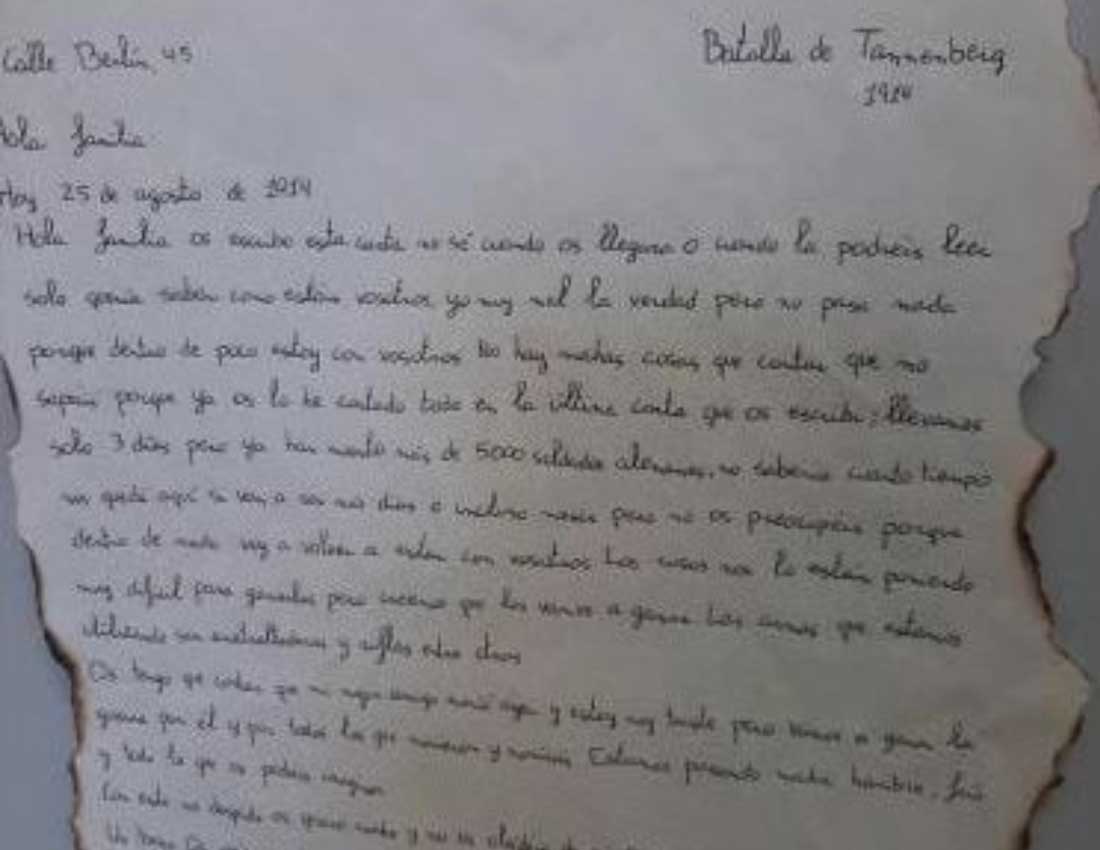 Calle Berlin, 45
Batalla de Tannenberg
1914
Hola familia
Hoy 25 de agosto de 1914
Hola familia os escribo esta carta no sé cuando os llegara o cuando la podreis leer
solo queria saber como estáis vosotros yo muy mal la verdad pero no pasa nada
porque dentro de poco estoy con vosotros No hay muchas cosas que contar que no
sepais porque ya os lo he contado todo en la ultima carta que os escribi, llevamos
solo 3 dias pero ya han muerto más de 5000 soldados alemanes, no sabemos cuanto tiempo
nos queda aqui si van a ser mas dias o incluso meses pero no os preocupeis porque
dentro de nada voy a volver a estar con vosotros Los rusos nos lo están poniendo
muy dificil para ganarles pero creemos que los vamos a ganar Las armas que estamos
utilizando son ametralladoras y rifles entre otras
Os tengo que contar que mi mejor amigo murió ayer y estoy muy triste pero vamos a ganar la
guerra por el y por todos los que murieron y moriran Estamos pasando mucha hambre, frio
y todo lo que os podais imaginar
Con esto me despido os quiero mucho y no os olvideis de
Un beso